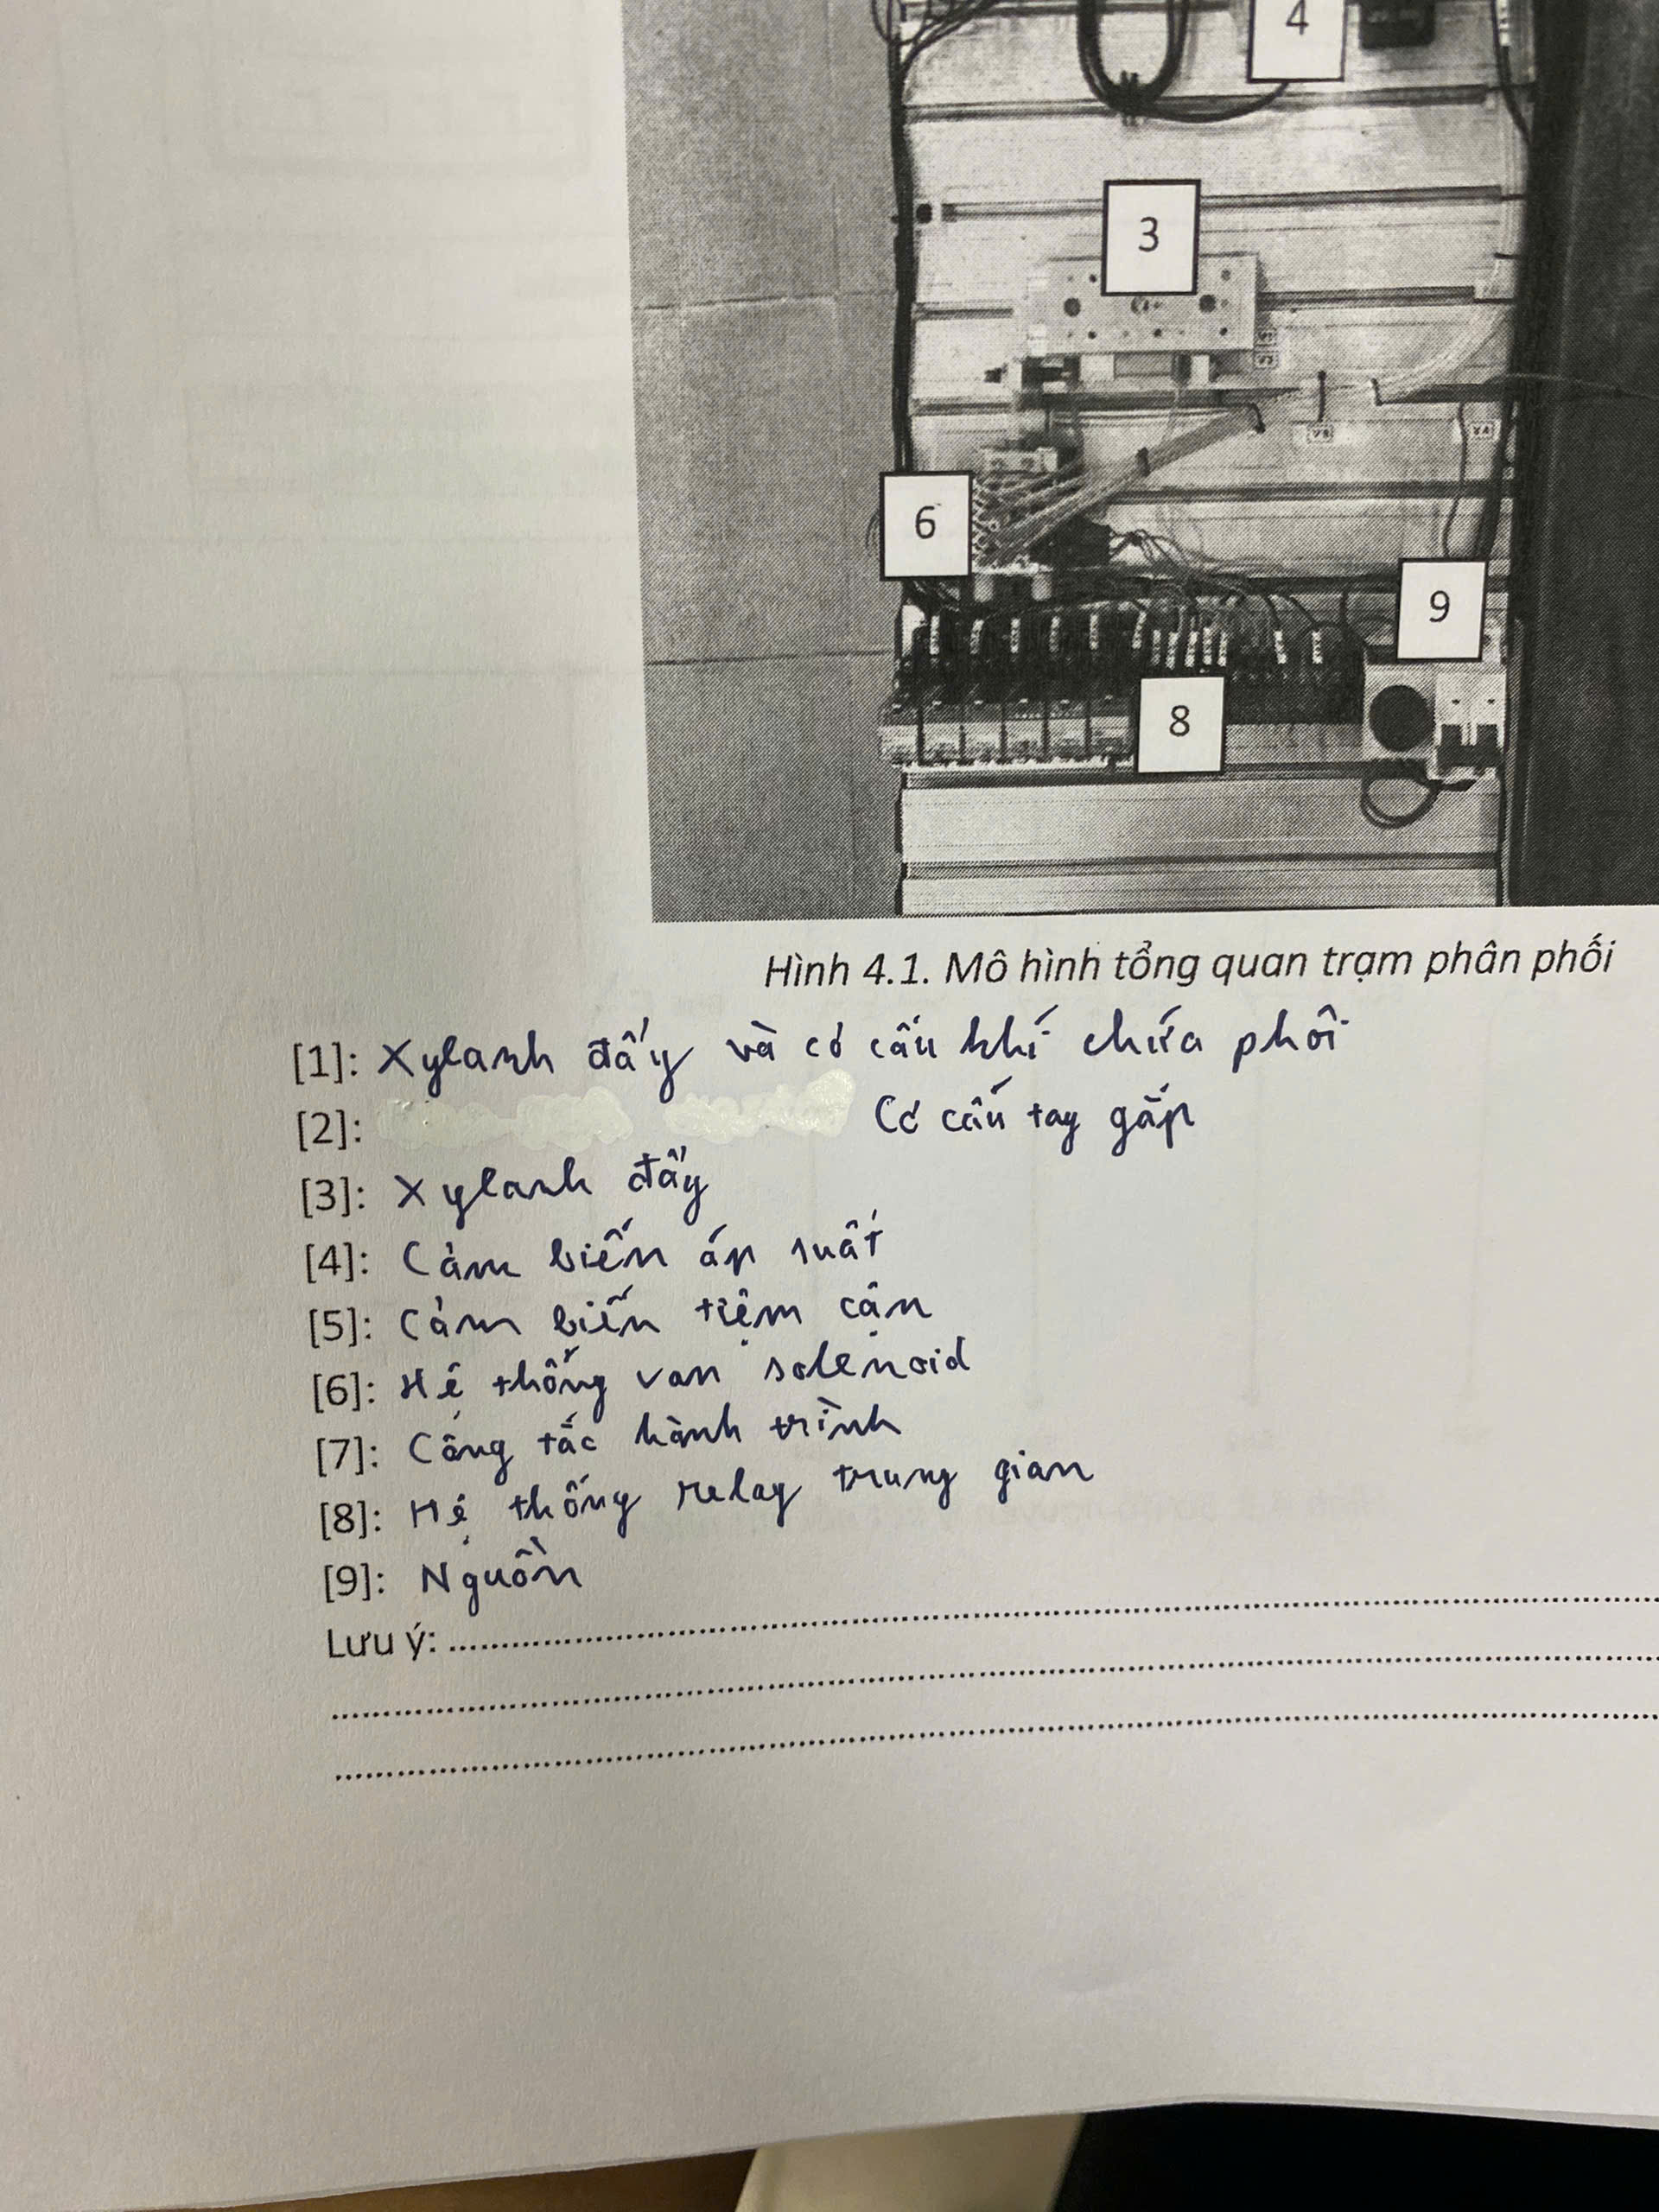 4
3
6
9
8
Hình 4.1. Mô hình tổng quan trạm phân phối
[1]: Xylanh đẩy và cơ cấu khí chứa phôi
[2]: Cơ cấu tay gắp
[3]: Xylanh đẩy
[4]: Cảm biến áp suất
[5]: Cảm biến tiệm cận
[6]: Hệ thống van solenoid
[7]: Công tắc hành trình
[8]: Hệ thống relay trung gian
[9]: Nguồn
Lưu ý: